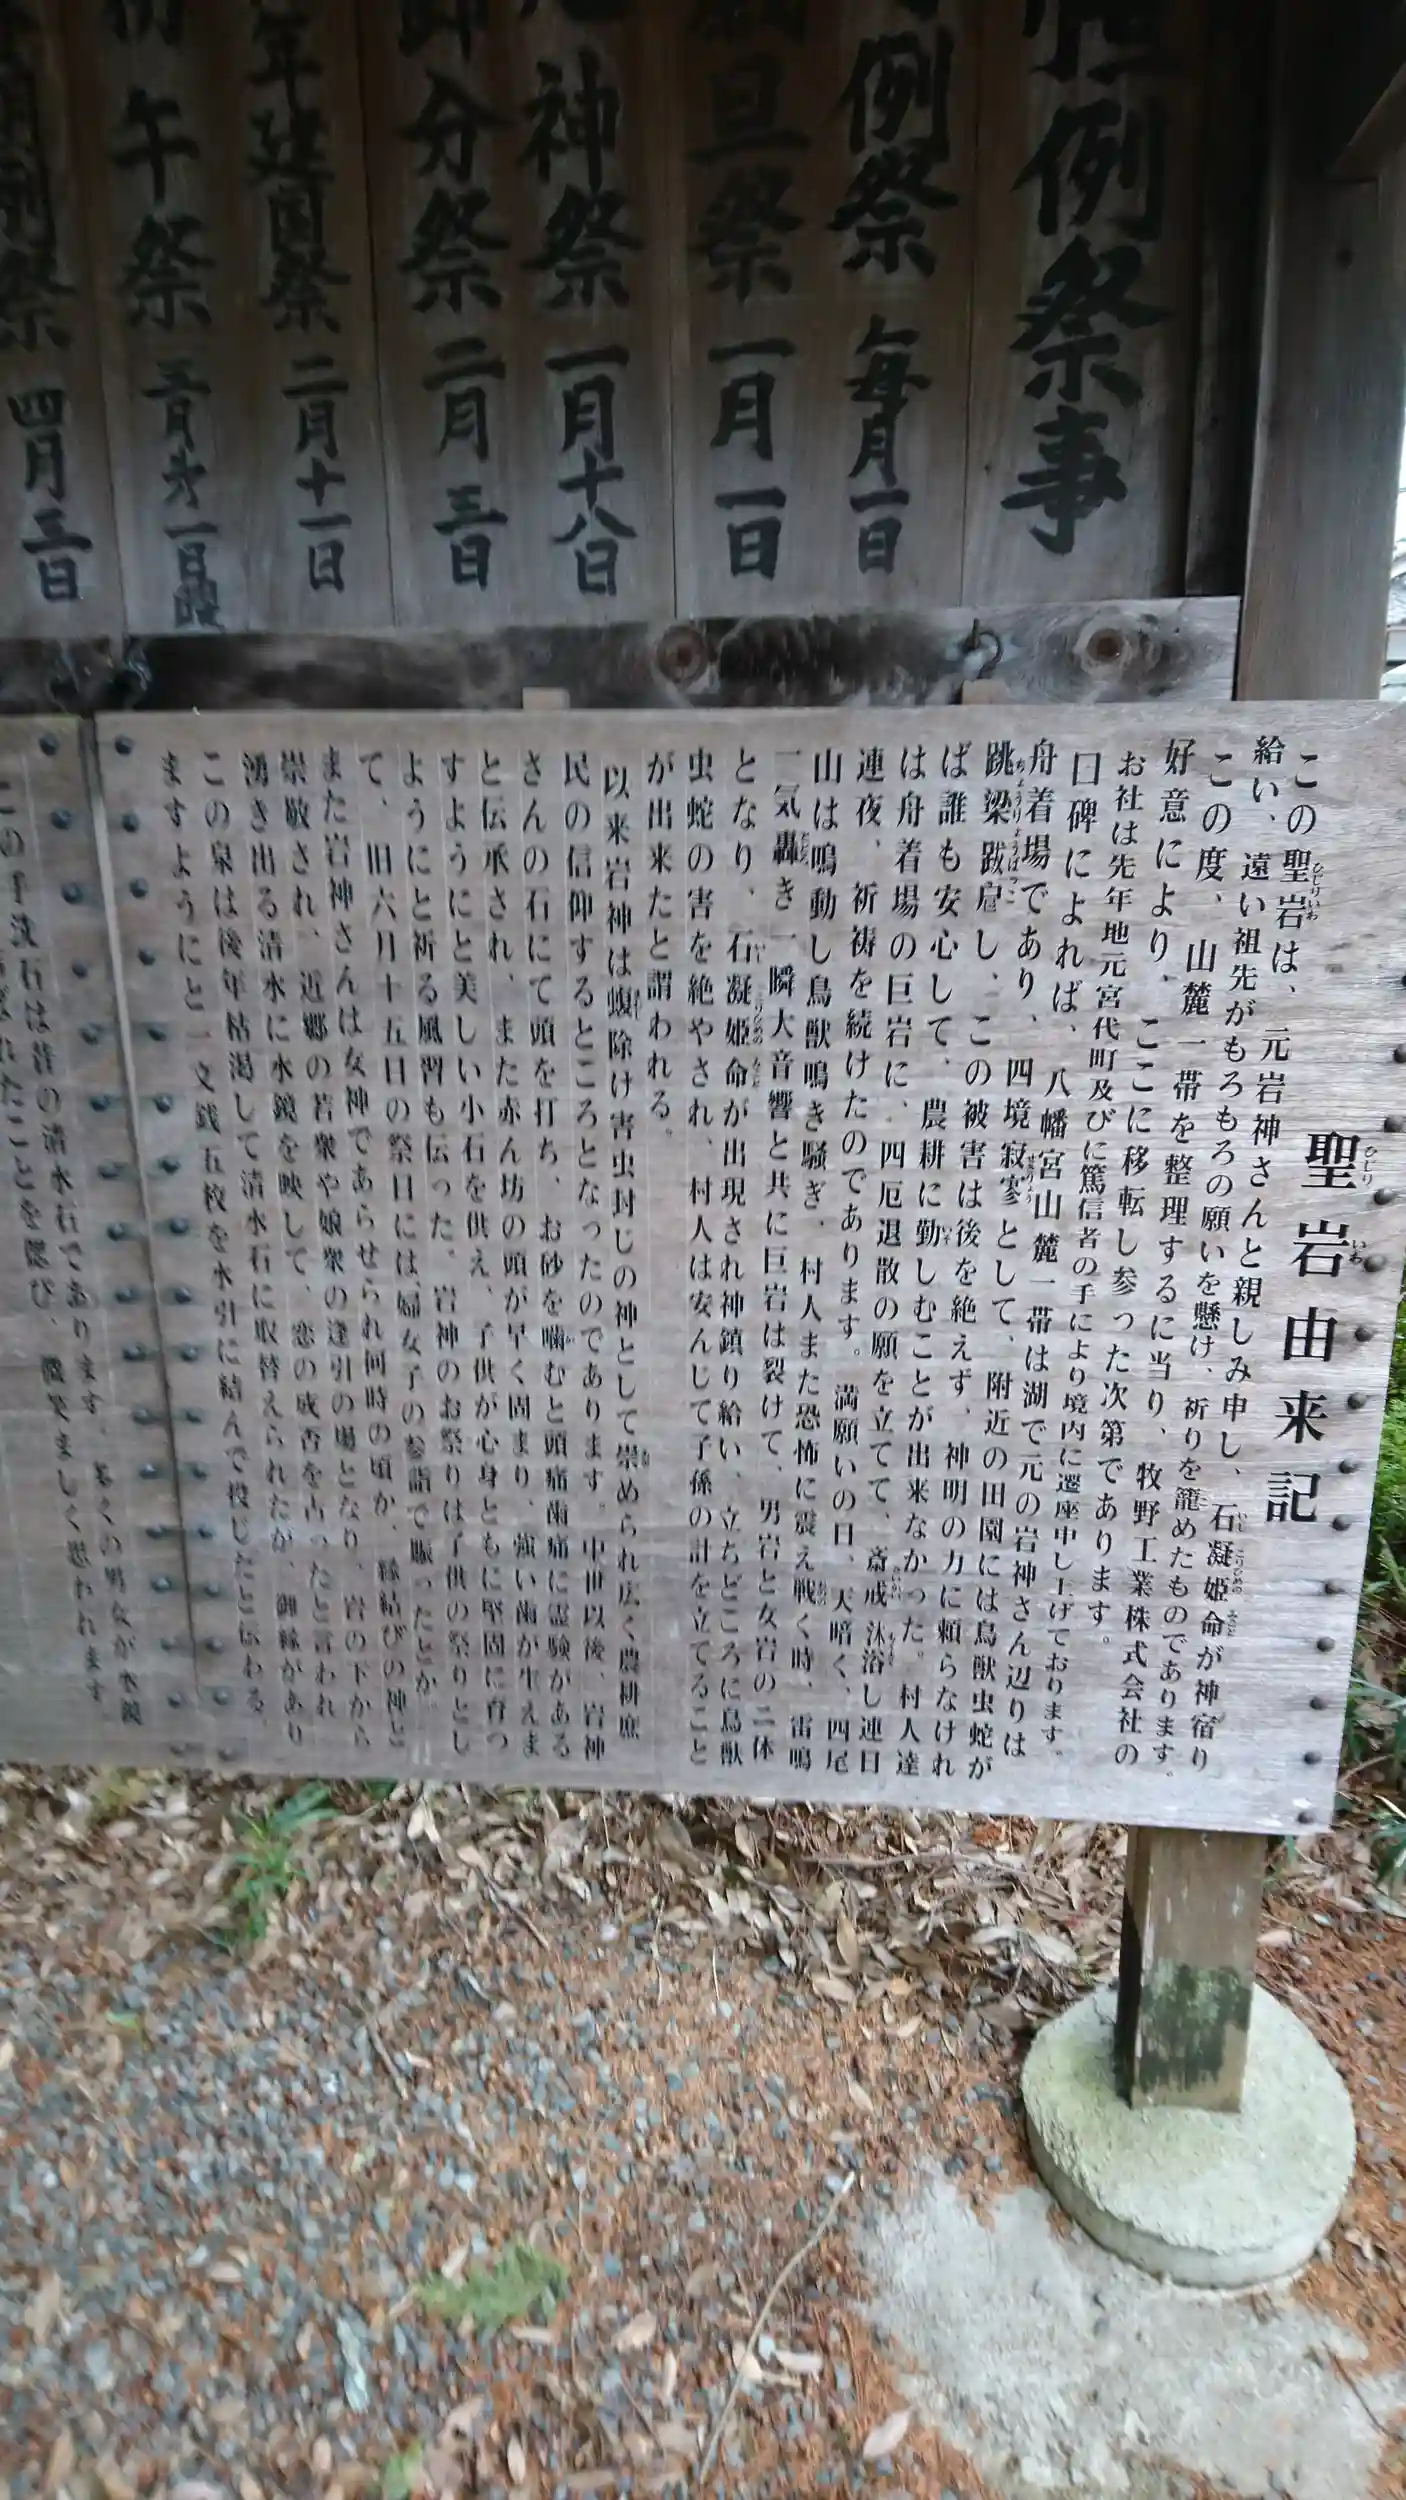 恒例祭事
例祭 毎月一日
旦祭 一月一日
神祭 一月十八日
節分祭 二月三日
年建国祭 二月十一日
初午祭 二月才一日曜
例祭 四月三日
聖岩由来記
この聖岩は、元岩神さんと親しみ申し、石凝姫命が神宿り
給い、遠い祖先がもろもろの願いを懸け、祈りを籠めたものであります。
この度、山麓一帯を整理するに当り、牧野工業株式会社の
好意により、ここに移転し参った次第であります。
お社は先年地元宮代町及びに篤信者の手により境内に遷座申し上げております。
口碑によれば、八幡宮山麓一帯は湖で元の岩神さん辺りは
舟着場であり、四境寂寥として、附近の田園には鳥獣虫蛇が
跳梁跋扈し、この被害は後を絶えず、神明の力に頼らなけれ
ば誰も安心して、農耕に勤しむことが出来なかった。村人達
は舟着場の巨岩に、四厄退散の願を立てて、斎戒沐浴し連日
連夜、祈祷を続けたのであります。満願いの日、天暗く、四尾
山は鳴動し鳥獣鳴き騒ぎ、村人また恐怖に震え戦く時、雷鳴
一気轟き一瞬大音響と共に巨岩は裂けて、男岩と女岩の二体
となり、石凝姫命が出現され神鎮り給い、立ちどころに鳥獣
虫蛇の害を絶やされ、村人は安んじて子孫の計を立てること
が出来たと謂われる。
以来岩神は蝮除け害虫封じの神として崇められ広く農耕庶
民の信仰するところとなったのであります。中世以後、岩神
さんの石にて頭を打ち、お砂を噛むと頭痛歯痛に霊験がある
と伝承され、また赤ん坊の頭が早く固まり、強い歯が生えま
すようにと美しい小石を供え、子供が心身ともに堅固に育つ
ようにと祈る風習も伝った。岩神のお祭りは子供の祭りとし
て、旧六月十五日の祭日には、婦女子の参詣で賑ったとか。
また岩神さんは女神であらせられ何時の頃か、縁結びの神と
崇敬され、近郷の若衆や娘衆の逢引の場となり、岩の下から
湧き出る清水に水鏡を映して、恋の成否を占ったと言われ
この泉は後年枯渇して清水石に取替えられたが、御縁があり
ますようにと一文銭五枚を水引に結んで投じたと伝わる。
この手洗石は昔の清水石であります 多くの男女が水鏡
れたことを偲び、微笑ましく思われます